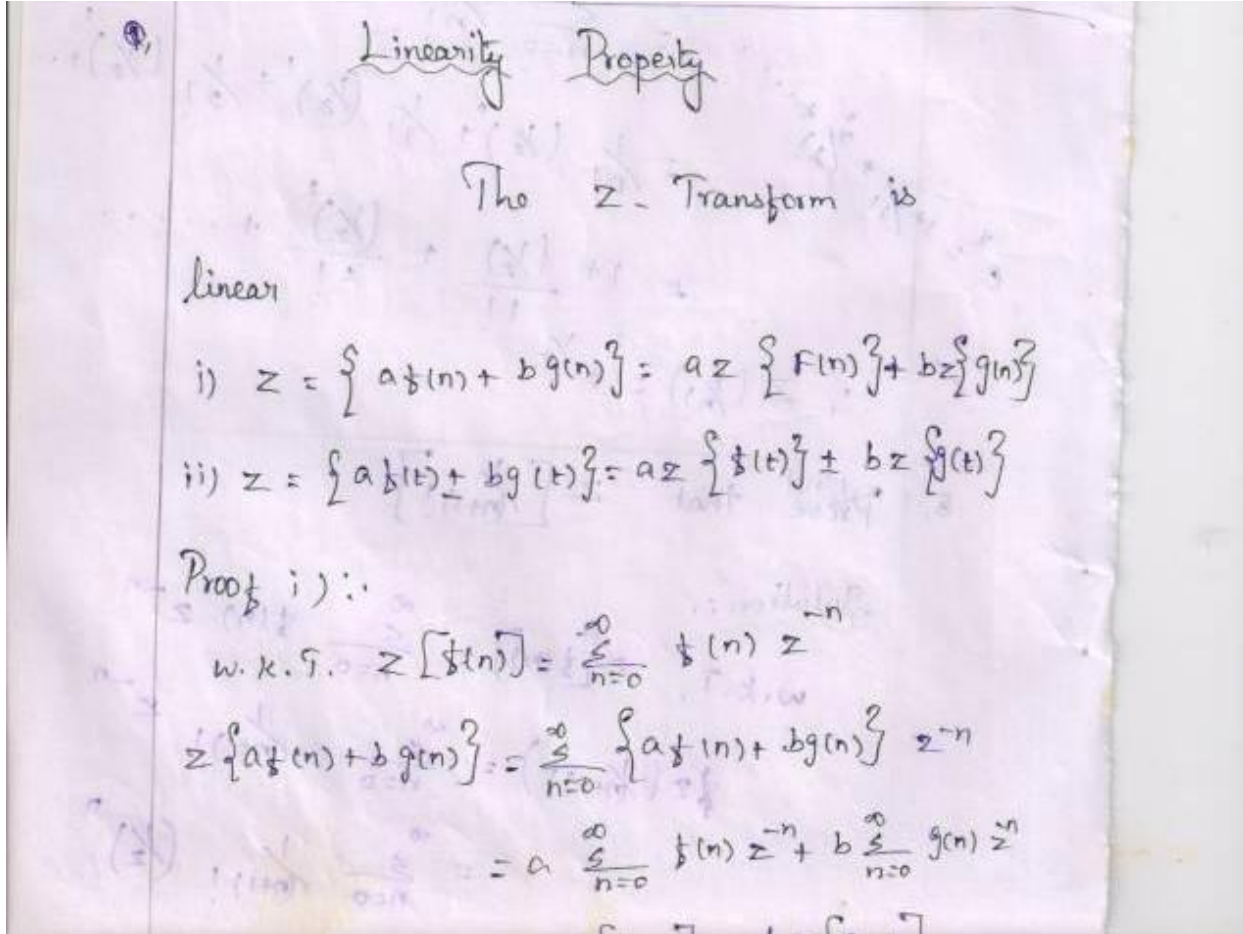 Linearity Property
The Z- Transform is
linear
i) Z = { a f(n) + b g(n) } = a z { F(n) } + b z { g(n) }
ii) Z = { a f(t) ± b g (t) } = a z { f(t) } ± b z { g(t) }
Proof i) :.
w.k.T. Z [f(n)] = ∞ Σ n=0 f(n) z^-n
z { a f(n) + b g(n) } = ∞ Σ n=0 { a f(n) + b g(n) } z^-n
= a ∞ Σ n=0 f(n) z^-n + b ∞ Σ n=0 g(n) z^-n